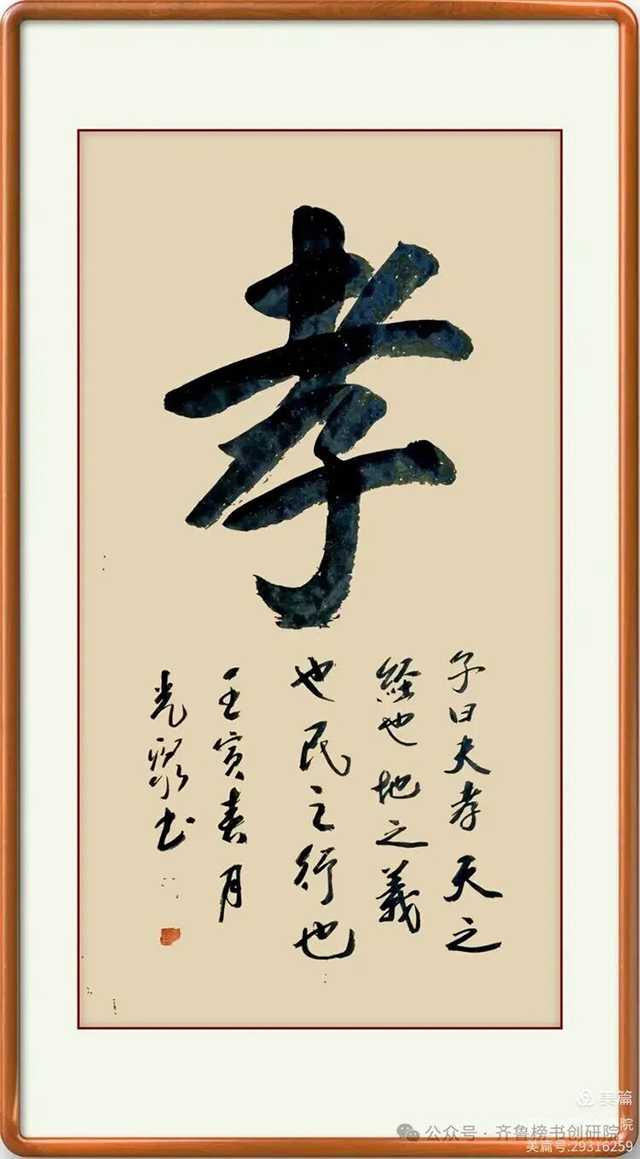 孝
子曰夫孝天之
経也地之義
也民之行也
壬寅春月
光聚书
美篇
公众号·齐鲁榜书创研院
美篇号:29316259